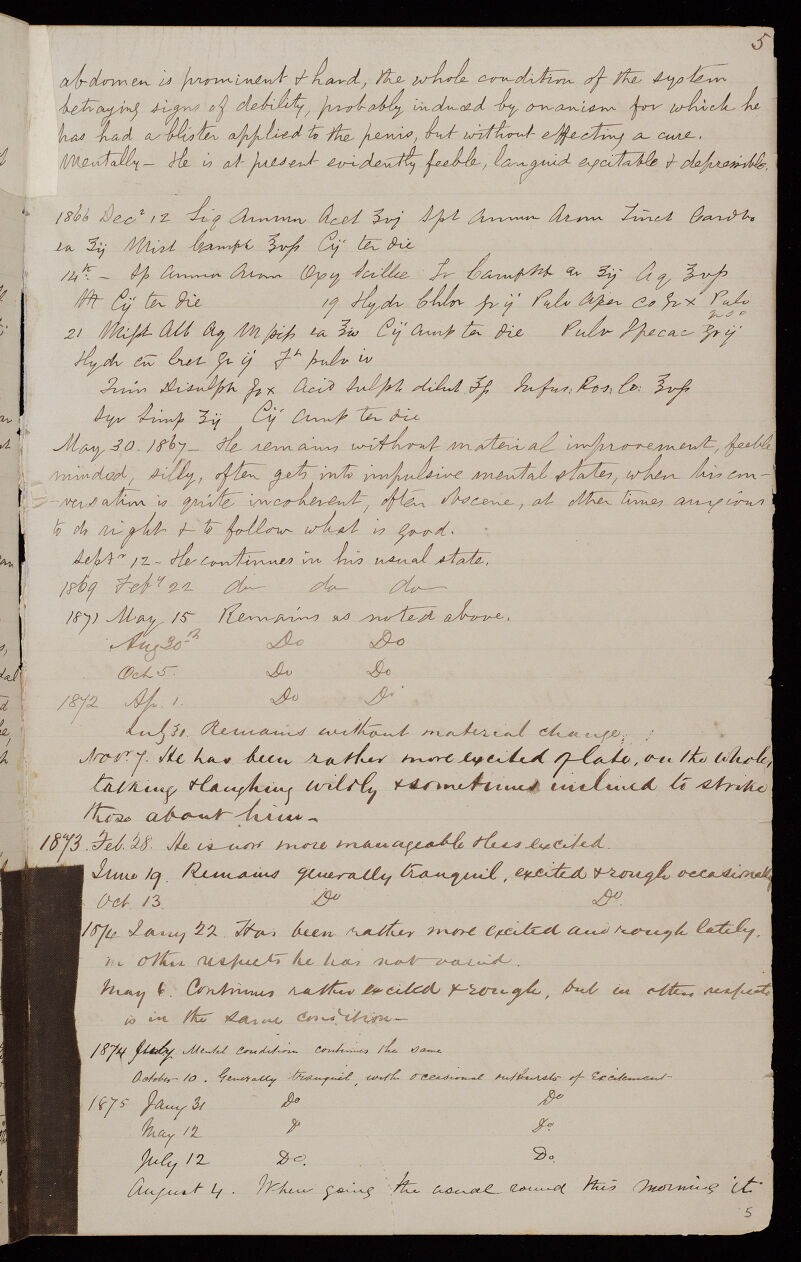 5
abdomen is prominent & hard, the whole condition of the system
betraying signs of debility, probably induced by onanism for which he
has had a blister applied to the penis, but without effecting a cure.
Mentally – He is at present evidently feeble, languid excitable & depressible.
1866 Decr 12 Liq Ammon Acet ʒvj Spt Ammon Arom Tinct Card Co
ea ʒij Mist Camph ʒvss Cij ter die
14th – Sp Ammon Arom Oxy Scillae Tr Camph ea ʒij Aq ʒvss
Cij ter die 19 Hydr Chlor gr ij Pulv Co gr x Pulv
21 Mist Alb Aq M pip ea ʒiv Cij ter die Pulv Ipecac gr ij
Hydr cu Cret gr ij Ft pulv iv
Quin Disulph gr x Acid Sulph dilut ʒss Infus: Ros: Co: ʒvss
Syr Simp ʒij Cij ter die
May 30. 1867 – He remains without material improvement, feeble
minded, silly, often gets into impulsive mental states, when his con-
-versation is quite incoherent, often obscene, at other times anxious
to do right & to follow what is good.
Septr 12 – He continues in his usual state.
1869 Feby 22 do do do
1871 May 15 Remains as noted above.
Aug 30th Do Do
Oct 5. Do Do
1872 Ap. 1. Do Do
July 31. Remains without material change.
Novr 7. He has been rather more excited of late, on the whole,
talking & laughing wildly & sometimes inclined to strike
those about him –
1873. Feb. 28. He is now more manageable & less excited.
June 19. Remains generally tranquil, excited & rough occasionally
Oct 13. Do Do.
1874 Jany 22. Has been rather more excited and rough lately.
in other respects he has not varied.
May 6. Continues rather excited & rough, but in other respects
is in the same condition –
1874 July Mental condition continues the same
October 10. Generally tranquil, with occasional outbursts of Excitement
1875 Jany 31 Do Do
May 12 Do
July 12 Do. Do.
August 4. When going the usual round this morning it
5